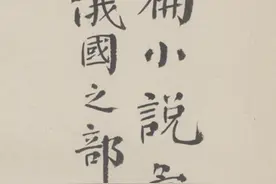 小說
俄國之部